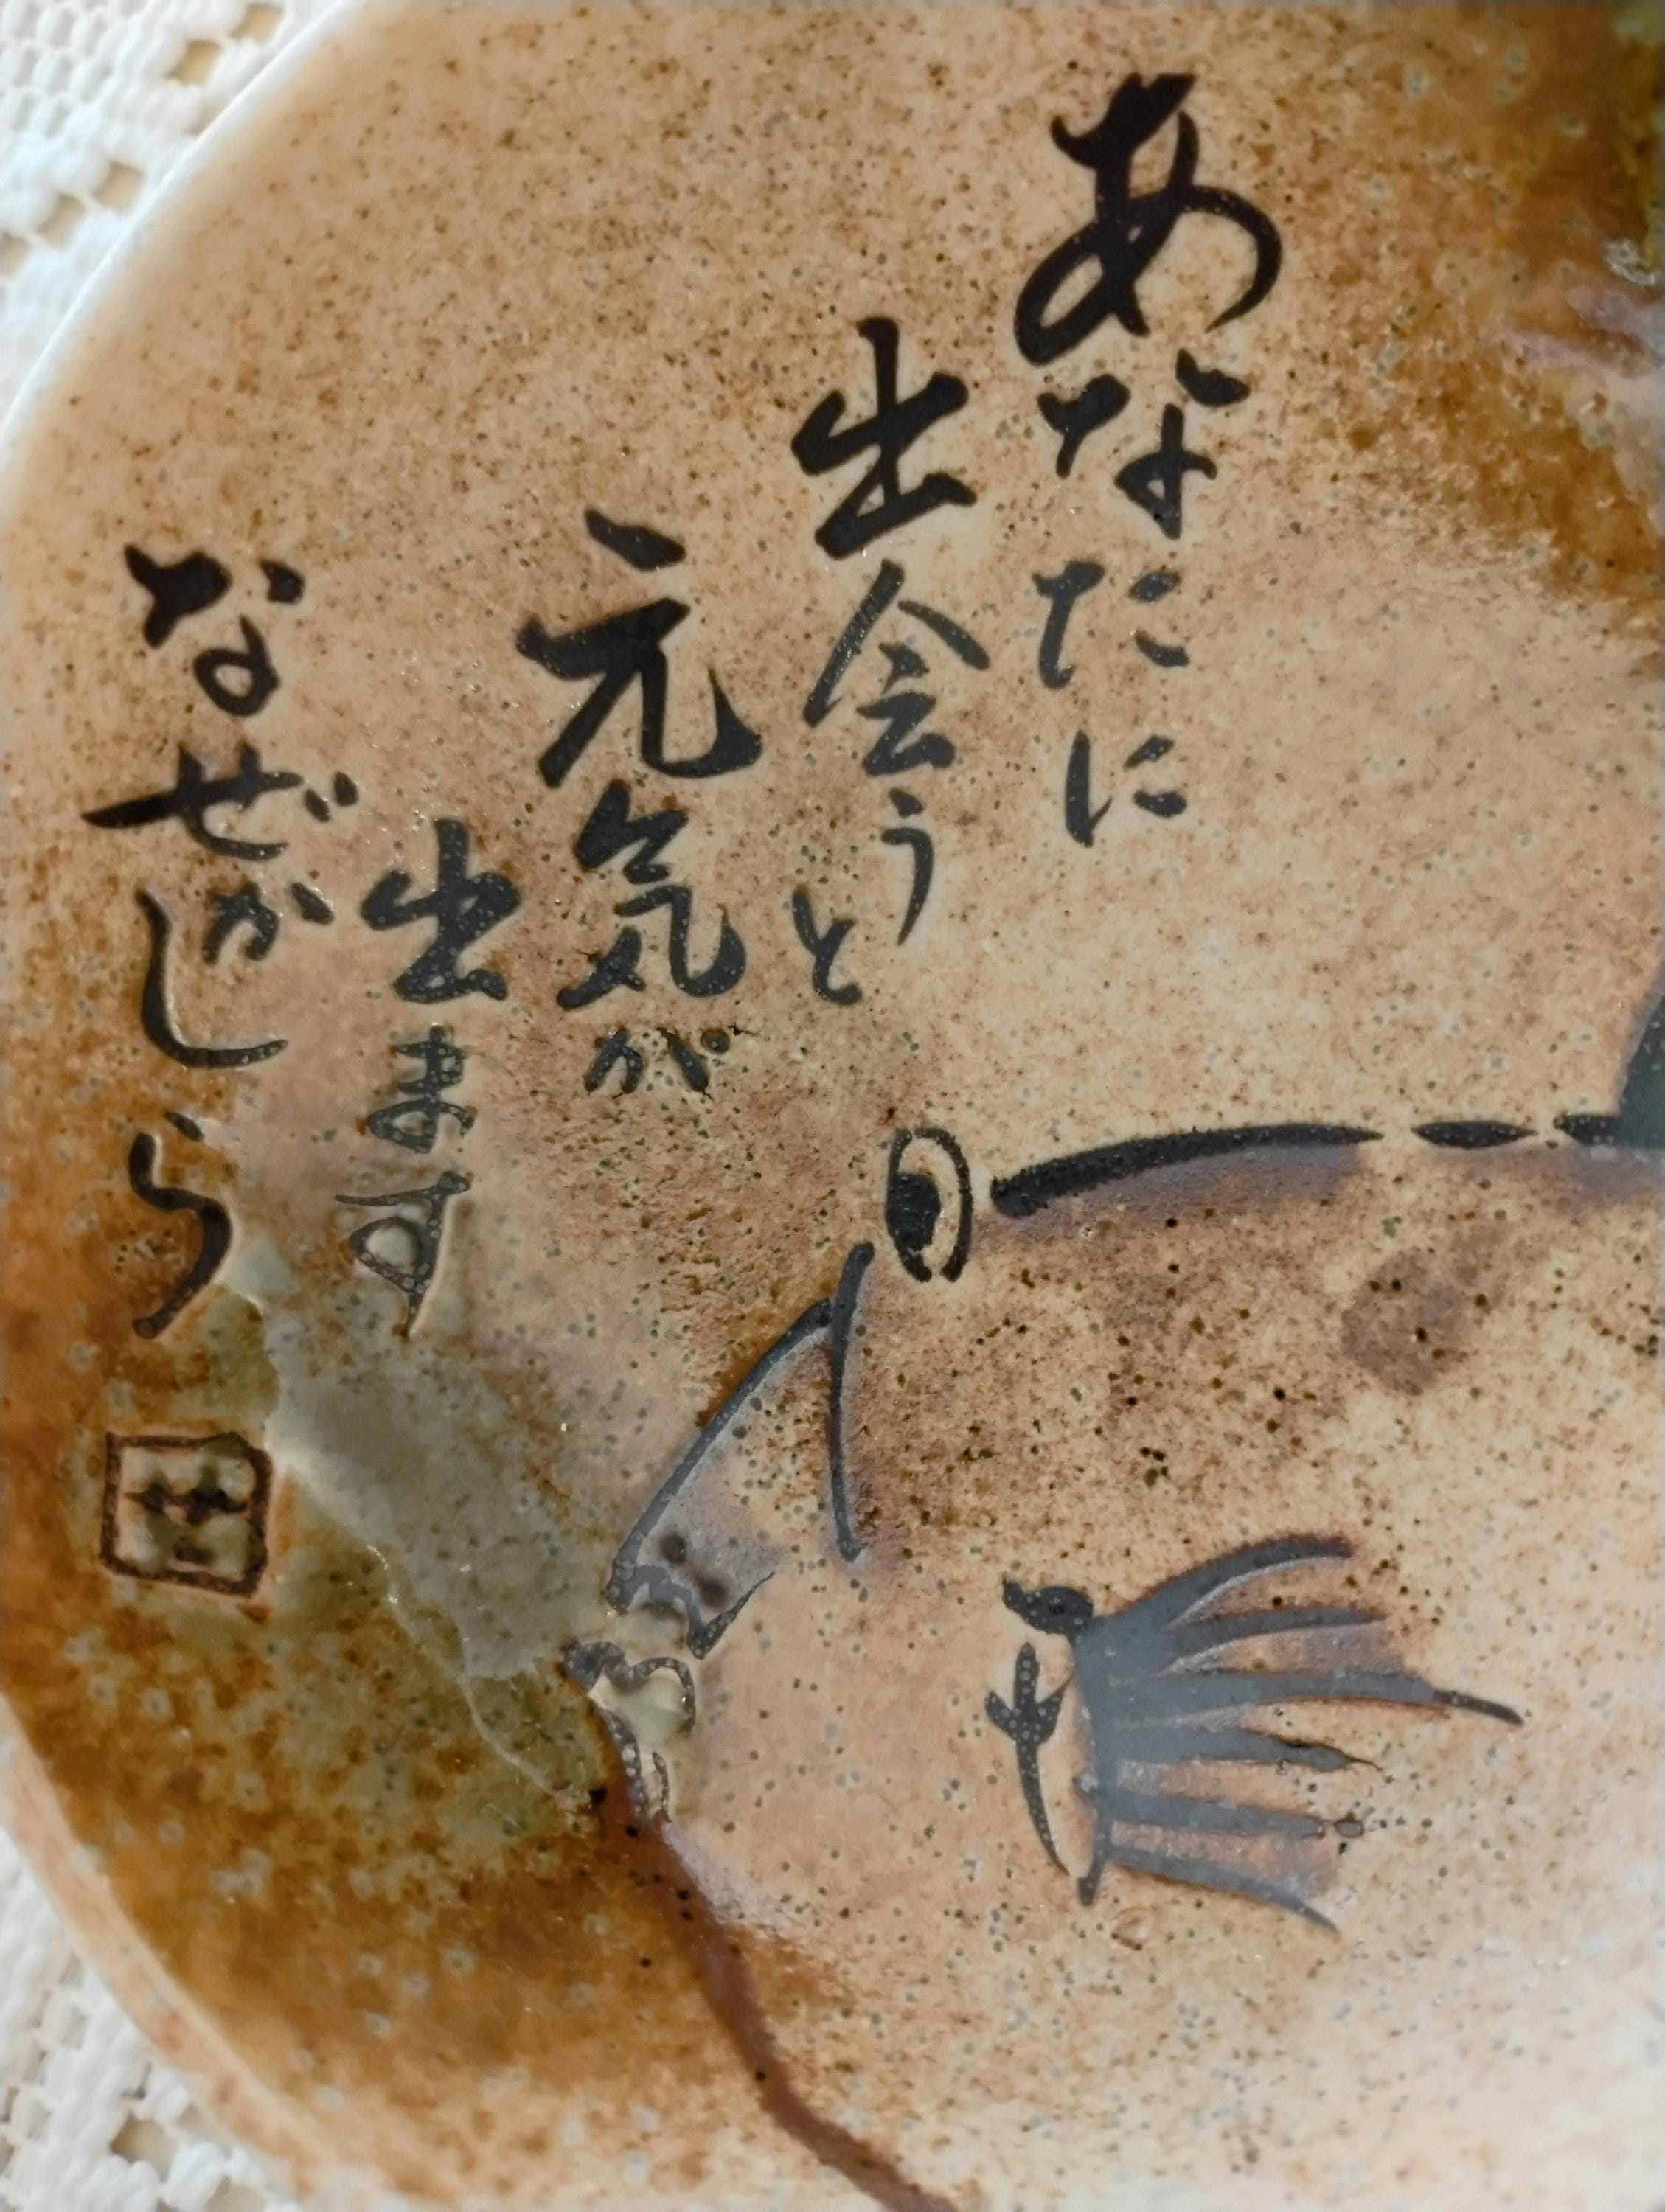 あなたに
出会うと
元気が
出ます
なぜかしら